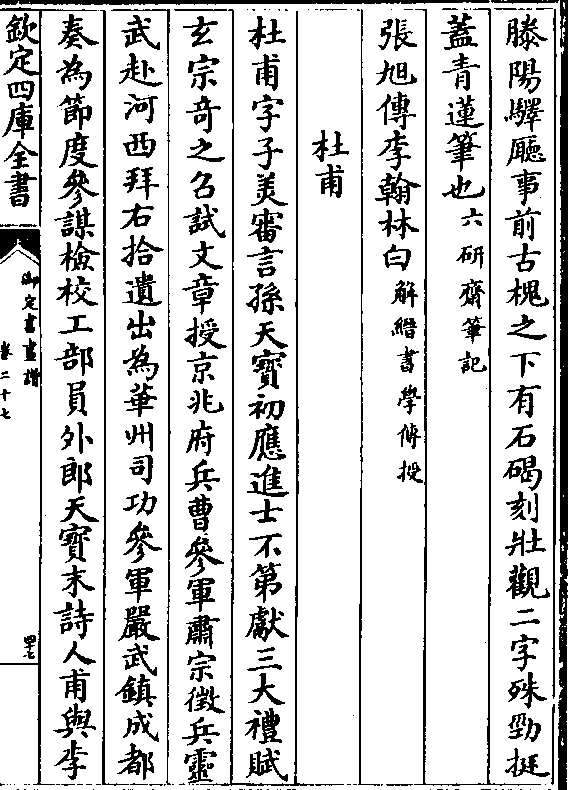 滕陽驛廳事前古槐之下有石碣刻壯觀二字殊勁挺
蓋青蓮筆也六研齋筆記
張旭傳李翰林白解縉書學傳授
杜甫
杜甫字子美審言孫天寶初應進士不第獻三大禮賦
玄宗奇之召試文章授京兆府兵曹參軍肅宗徵兵靈
武赴河西拜右拾遺出為華州司功參軍嚴武鎮成都
奏為節度參謀檢校工部員外郎天寶末詩人甫與李
欽定四庫全書
御定書畫譜
卷二十七
四七